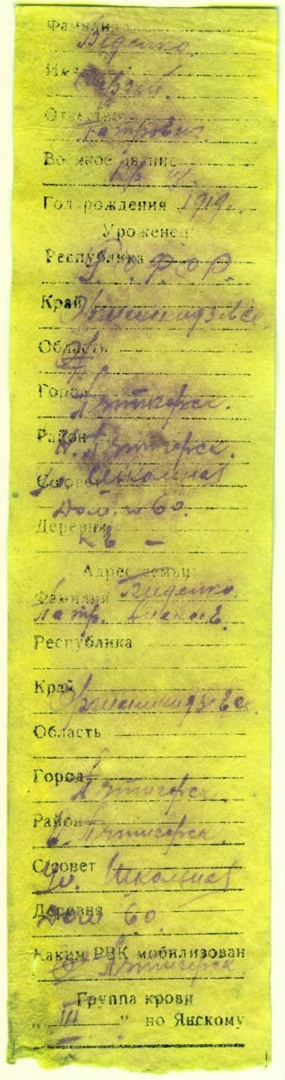 Фамилия
Имя
Сергей.
Отчество
Петрович.
Военное звание
Год рождения 1919.
Уроженец
Республика Р.С.Ф.С.Р.
Край Орджоникидзевск.
Область
Город Пятигорск.
Район г. Пятигорск.
С/совет Ул. Школьная
Дом. № 60.
Деревня кв –
Адрес семьи
Фамилия
Петр.
Республика
Край Орджоникидзевск.
Область
Город Пятигорск.
Район г. Пятигорск.
С/совет Ул. Школьная
Деревня Дом 60.
Каким РВК мобилизован
Пятигорск
Группа крови
„ III “ по Янскому